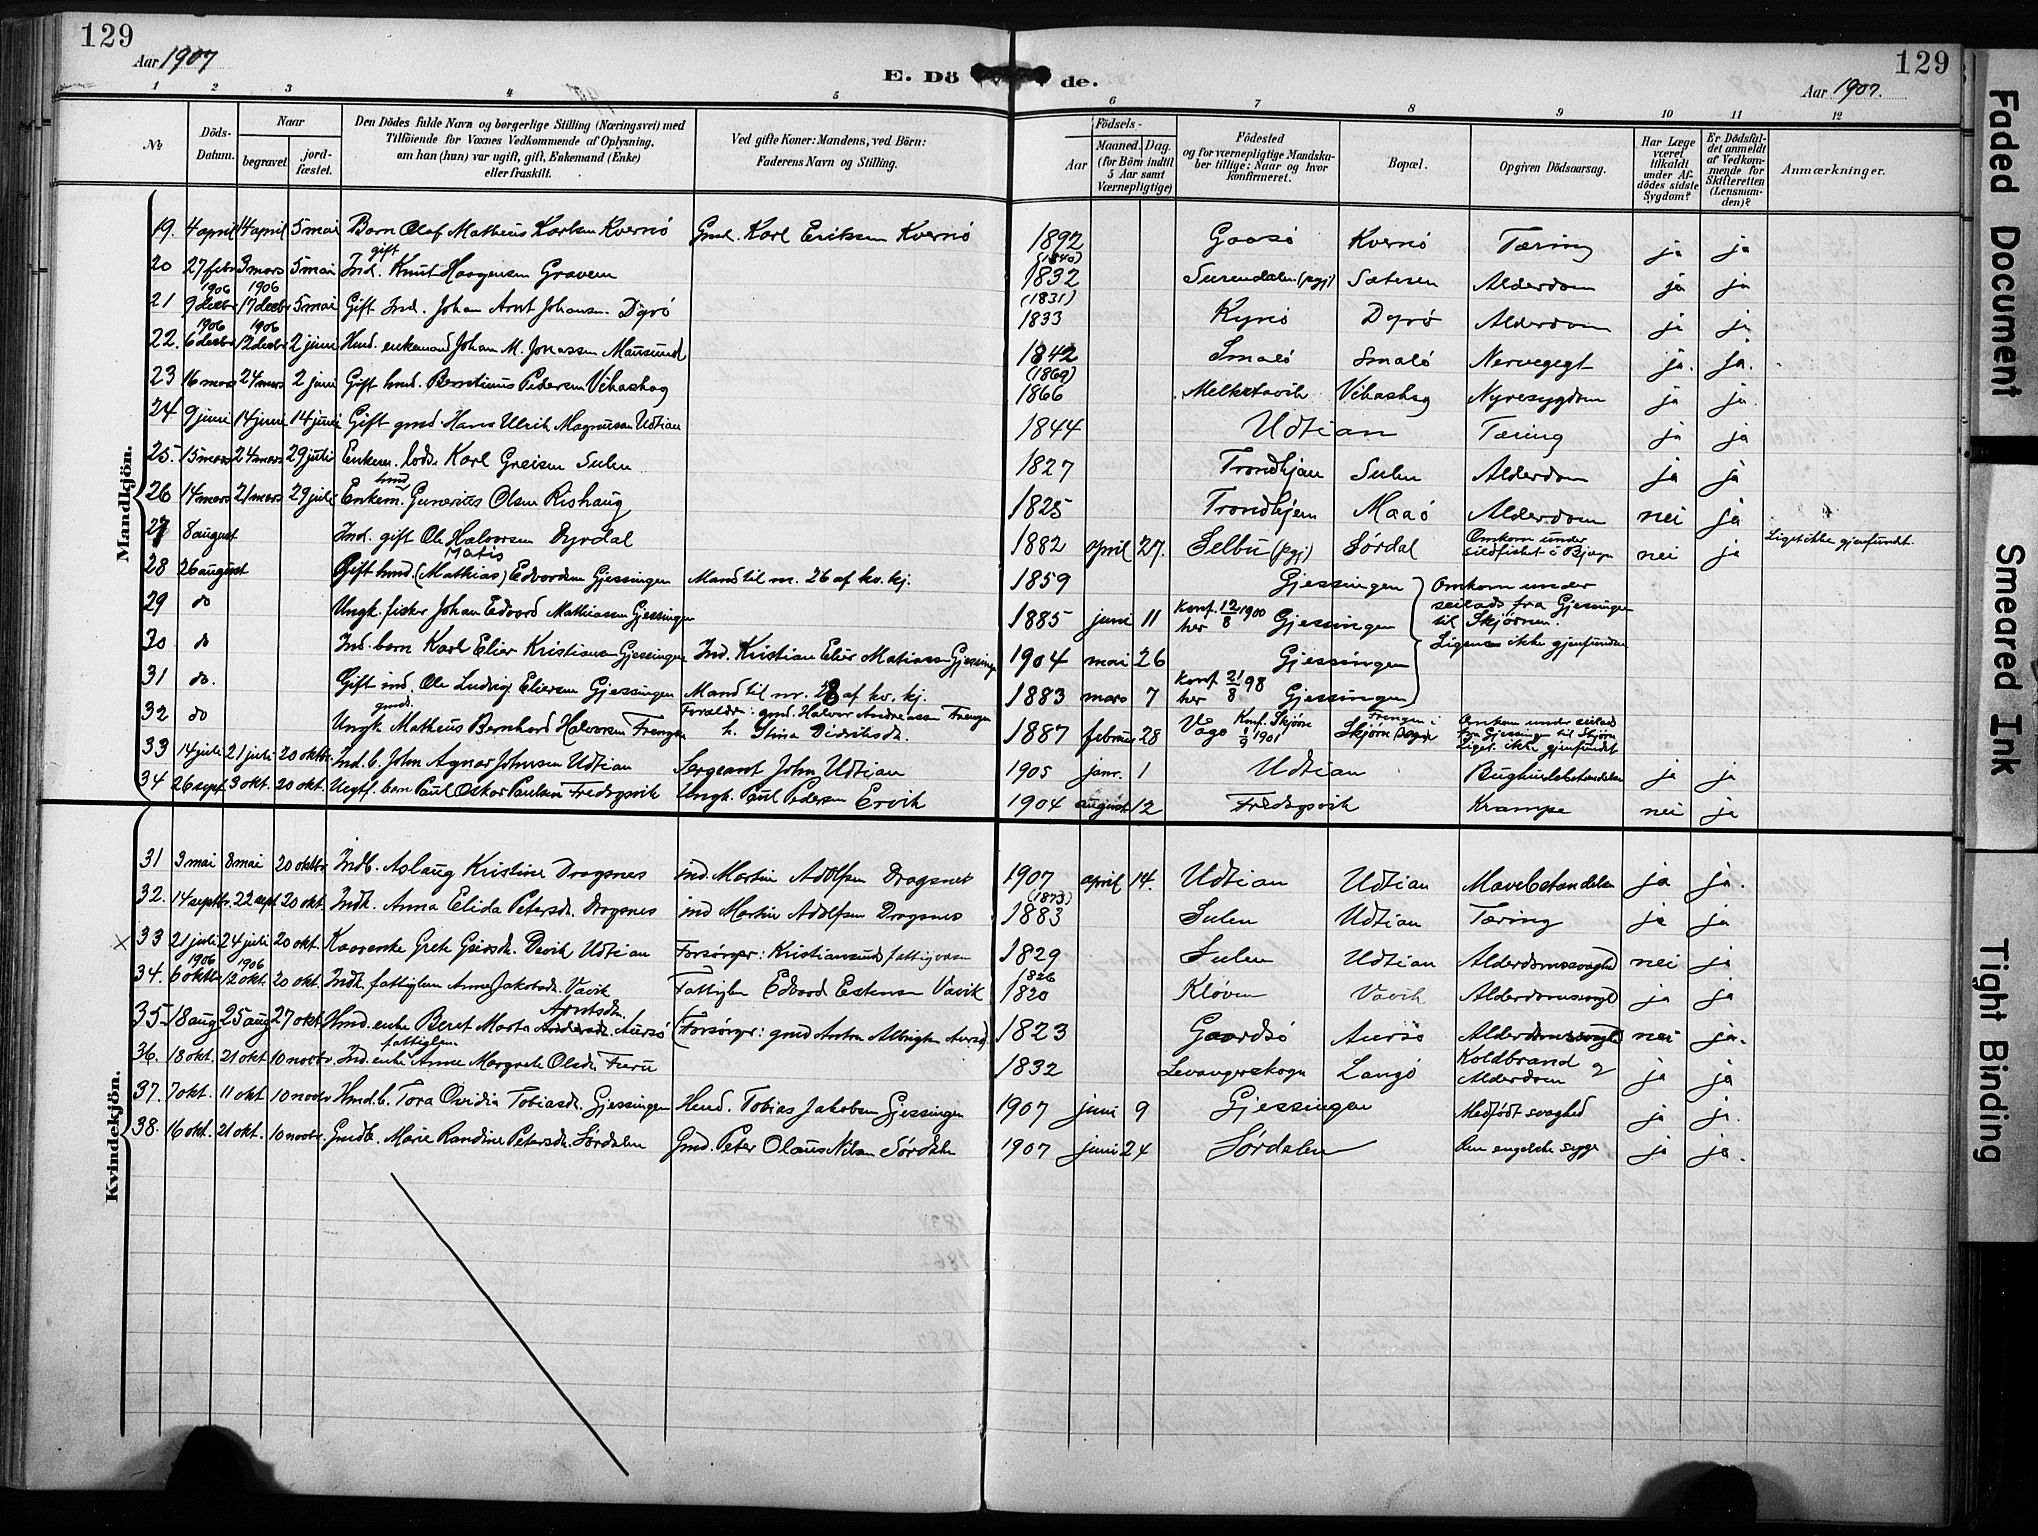 129
Aar 1907
E. Dö de.
129
Aar 1907.
1 2 3 4 5 6 7 8 9 10 11 12
No
Döds-Datum.
Naar
begravet. jord-fæstet.
Den Dödes fulde Navn og borgerlige Stilling (Næringsvei) med
Tilföiende for Voxnes Vedkommende af Oplysning,
om han (hun) var ugift, gift, Enkemand (Enke)
eller fraskilt.
Ved gifte Koner: Mandens, ved Börn:
Faderens Navn og Stilling.
Födsels-
Aar
Maaned. Dag.
(for Börn indtil
5 Aar samt
Værnepligtige)
Födested
og for værnepligtige Mandska-
ber tillige: Naar og hvor
konfirmeret.
Bopæl.
Opgiven Dödsaarsag.
Har Læge
været
tilkaldt
under Af-
dödes sidste
Sygdom?
Er Dödsfal-
det anmeldt
af Vedkom-
mende for
Skifteretten
(Lensman-
den)?
Anmærkninger.
Mandkjön.
19. 4 april 14 april 5 mai Barn Olaf Matheus Karlsen Kvernö Gmd. Karl Eriksen Kvernö 1892 Gaasö Kvernö Tæring ja ja
20 27 febr 3 mars 5 mai Ind. gift Knut Haagensen Gravem (1840) 1832 Surendalen (pgj) Sætersen Alderdom ja ja
21 9 decbr 1906 17 decbr 1906 5 mai Gift Ind. Johan Arnt Johansen Dyrö (1831) 1833 Dyrö Alderdom ja ja
22. 6 decbr 1906 12 decbr 1906 2 juni Hmd. enkemand Johan M. Jonassen Mausund 1842 Smalö Smalö Nervegigt ja. ja.
23 16 mars 24 mars 2 juni Gift hmd. Berntinus Pedersen Vikashag (1869) 1866 Melkstavik Vikashag Nyresygdom ja ja
24 9 juni 14 juni 14 juni Gift gmd. Hans Ulrik Magnussen Udtian 1844 Udtian Tæring ja ja
25. 15 mars 24 mars 29 juli Enkem. lods. Karl Greisen Sulen 1827 Trondhjem Sulen Alderdom ja ja
26 14 mars 21 mars 29 juli Enkem. hmd Gunerius Olsen Rishaug 1825 Trondhjem Maaö Alderdom nei ja
27 8 august Ind. gift Ole Halvorsen Dyrdal 1882 april 27. Selbu (pgj) Sørdal Omkom under sildfisket i nei ja Liget ikke gjenfundt.
28 26 august Gift hmd. (Mathias) Matis Edvardsen Gjessingen Mand til nr. 26 af kv. kj. 1859 Gjessingen Omkom under
29 do Ungk. fisker Johan Edvard Mathiassen Gjessingen 1885 juni 11 Konf. 12/8 1900 her Gjessingen seilads fra Gjessingen til Skjørnen.
30 do Ind. barn Karl Elier Kristiansen Gjessingen Ind. Kristian Elier Matiassen Gjessingen 1904 mai 26 Gjessingen Ligene ikke gjenfundne
31 do. Gift ind. Ole Ludvig Eliersen Gjessingen Mand til nr. 28 af kv. kj. 1883 mars 7 Konf. 21/8 98 her Gjessingen
32 do Ungk. gmds. Matheus Bernhard Halvorsen Frengen Forældre: gmd. Halvor Andreassen Frengen h. Stina Didriksdr. 1887 februar 28 Vågø Konf. Skjørn 1/9 1901 Frengen i Skjørn Omkom under seilads fra Gjessingen til Skjørn Liget ikke gjenfundet
33 14 juli 21 juli 20 oktbr. Ind. b. John Agnar Johnsen Udtian Sergeant John Udtian 1905 janr. 1 Udtian Bughindebetændelse ja ja
34 26 sept 3 okt. 20 okt. Uegtf. barn Paul Oskar Paulsen Fredagsvik Ungk. Paul Pedersen Ervik 1904 august 12 Fredagsvik Krampe nei ja
Kvindekjön.
31 3 mai 8 mai 20 oktbr. Indb. Aslaug Kristine Dragsnes ind. Martin Adolfsen Dragsnes 1907 april 14. Udtian Udtian Mavebetændelse ja ja.
32. 14 septbr. 22 sept 20 okt. Indh. Anna Elida Petersdr. Dragsnes ind Martin Adolfsen Dragsnes (1873) 1883 Sulen Udtian Tæring ja ja
x 33 21 juli 24 juli 20 okt. Kaarenke Grete Greisdr. Udtian Forsørger: Kristiansunds fattigvæsen 1829 Sulen Udtian Alderdomssvaghed nei ja
34. 6 oktbr 1906 12 okt. 1906 20 okt. Indh. fattiglem Anne Jakobsdr. Vavik Fattiglem Edvard Estensen Vavik 1826 1820 Kløven Vavik Alderdomssvagh ja ja
35. 18 aug 25 aug 27 okt Hmd. enke Beret Marta Andersdr. Arntsdr. Aursö (Forsørger: gmd Anton Albrigtsen Aursö) 1823 Gaardsö Aursö Alderdomssvaghed nei ja.
36. 18 okt. 21 okt 10 novbr. Ind. enke fattiglem Anne Margrete Olsdr. Furu 1832 Levangerskogn Langö Koldbrand og Alderdom ja ja
37. 7 okt. 11 okt 10 novbr Hmd.b. Tora Ovidia Tobiasdr. Gjessingen Hmd. Tobias Jakobsen Gjessingen 1907 juni 9 Gjessingen Medfødt svaghed ja ja.
38. 16 okt. 21 okt. 10 novbr. Gmdb. Marie Randine Petersdr. Sørdalen Gmd. Peter Olaus Nilsen Sørdalen 1907 juni 24 Sørdalen Den engelske syge ja ja.
Faded Document
Smeared Ink
Tight Binding